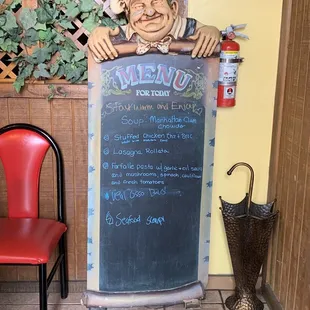 MENU
FOR TODAY
Stay Warm and Enjoy
Soup Manhattan Clam
chowder
Stuffed Chicken
Lasagna Rollata
Farfalle pasta w/ garlic + oil
and mushrooms, spinach,
and fresh tomatoes
Seafood